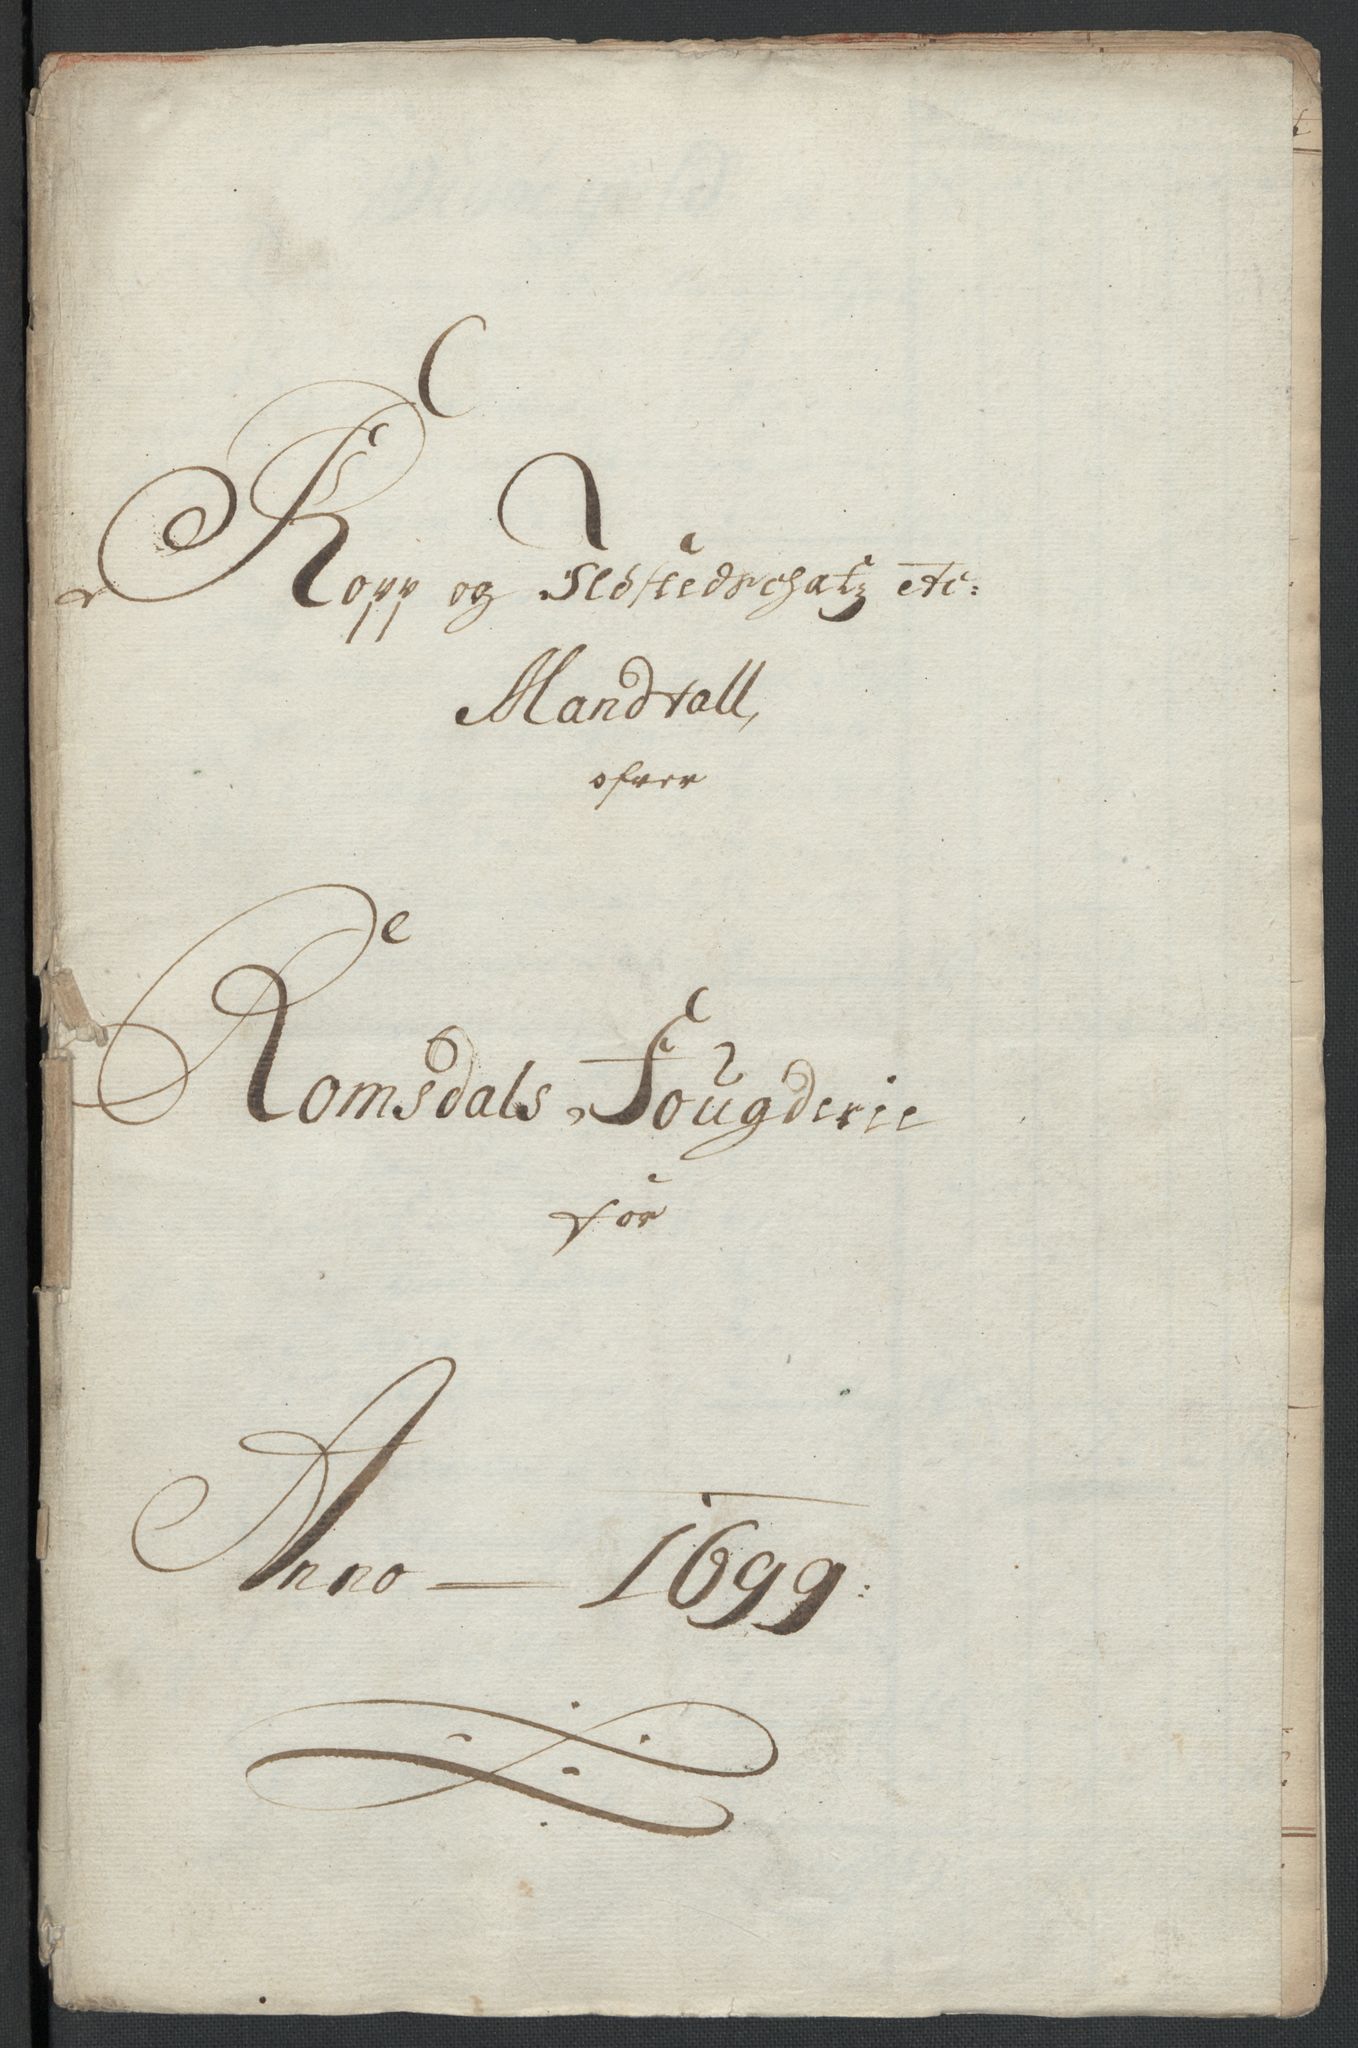 Kopp og Ildstedschatz etc:
Mandtall,
ofver
Romsdals Fougderie
for
Anno — 1699: